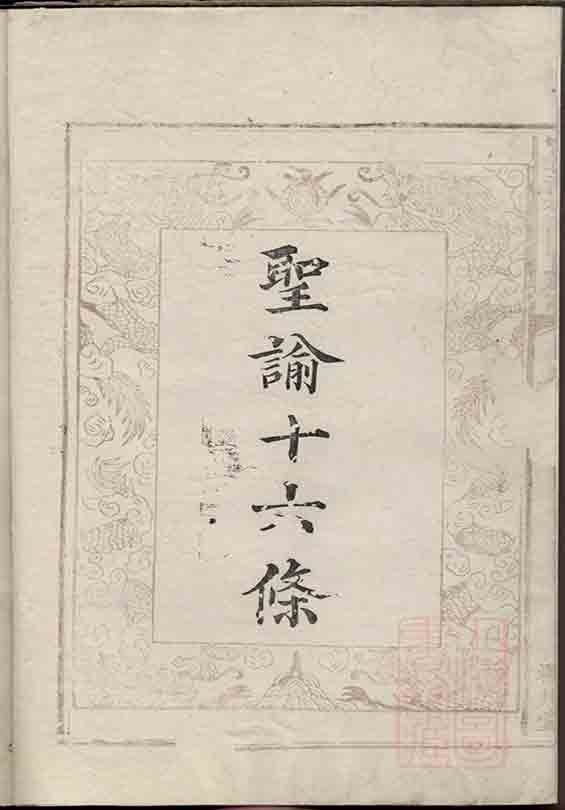 聖諭十六條